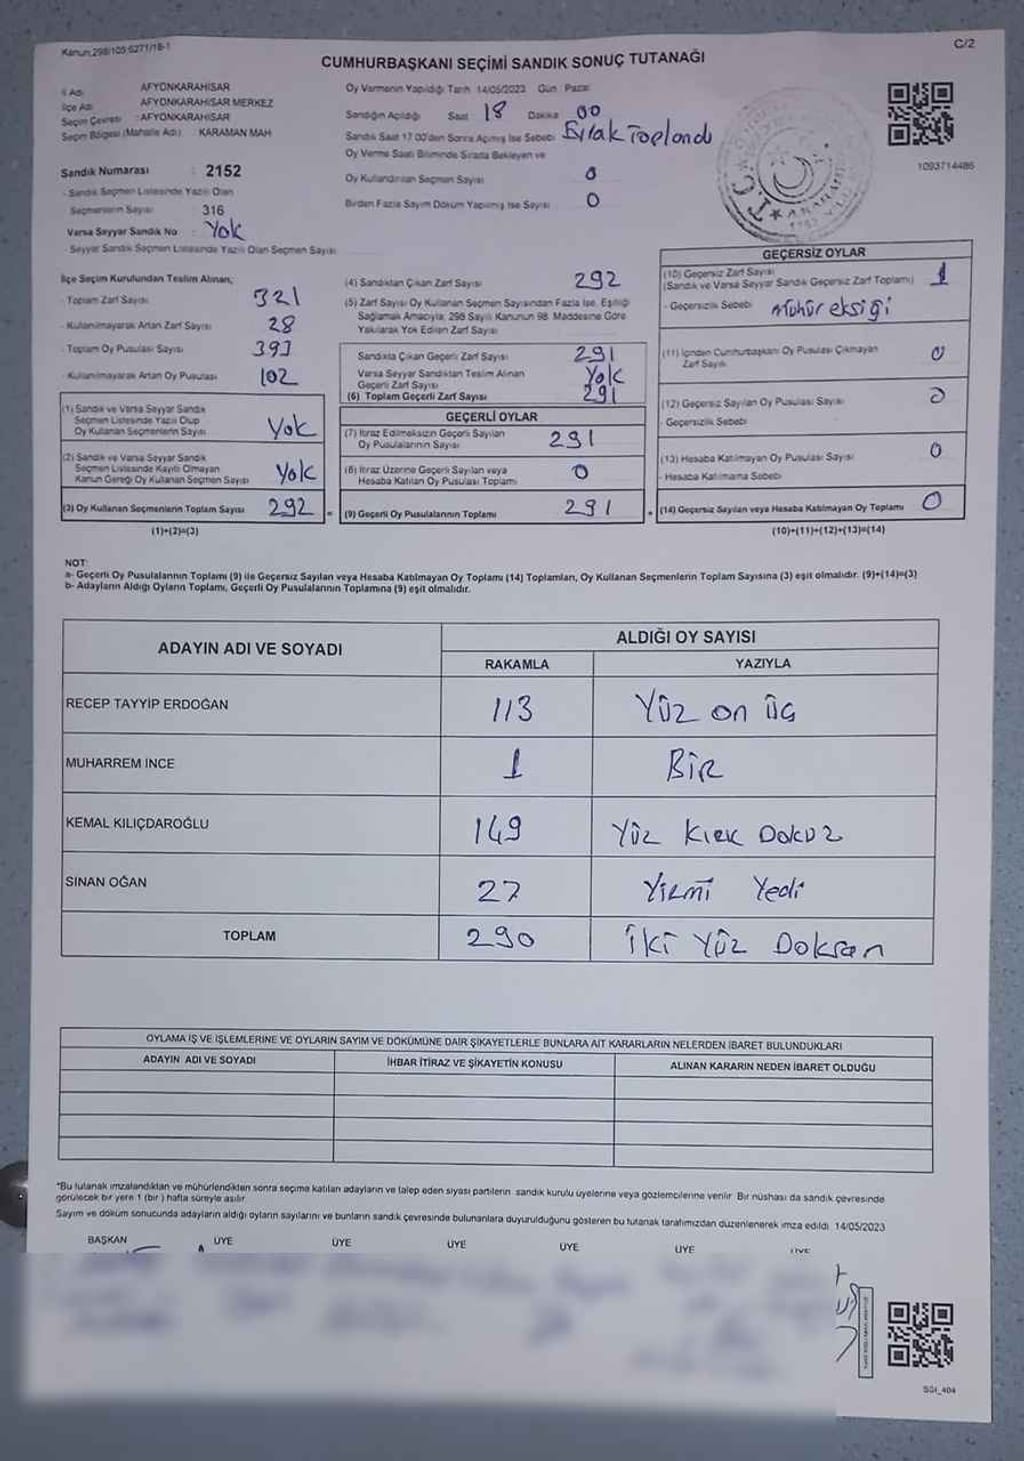 Kanun 298/105 6271/18-1
C/2
CUMHURBAŞKANI SEÇİMİ SANDIK SONUÇ TUTANAĞI
İl Adı AFYONKARAHİSAR
İlçe Adı AFYONKARAHİSAR MERKEZ
Seçim Çevresi : AFYONKARAHİSAR
Seçim Bölgesi (Mahalle Adı) : KARAMAN MAH
Oy Vermenin Yapıldığı Tarih 14/05/2023 Gün Pazar
Sandığın Açıldığı Saat 18 Dakika 00
Sandık Saat 17.00'den Sonra Açılmış İse Sebebi Evrak Toplandı
Oy Verme Saati Bitiminde Sırada Bekleyen ve
Oy Kullandırılan Seçmen Sayısı 0
Birden Fazla Sayım Döküm Yapılmış İse Sayısı 0
1093714486
Sandık Numarası : 2152
- Sandık Seçmen Listesinde Yazılı Olan
Seçmenlerin Sayısı 316
Varsa Seyyar Sandık No : Yok
- Seyyar Sandık Seçmen Listesinde Yazılı Olan Seçmen Sayısı
İlçe Seçim Kurulundan Teslim Alınan;
- Toplam Zarf Sayısı 321
- Kullanılmayarak Artan Zarf Sayısı 28
- Toplam Oy Pusulası Sayısı 393
- Kullanılmayarak Artan Oy Pusulası 102
(1) Sandık ve Varsa Seyyar Sandık
Seçmen Listesinde Yazılı Olup
Oy Kullanan Seçmenlerin Sayısı Yok
(2) Sandık ve Varsa Seyyar Sandık
Seçmen Listesinde Kayıtlı Olmayan
Kanun Gereği Oy Kullanan Seçmen Sayısı Yok
(3) Oy Kullanan Seçmenlerin Toplam Sayısı 292
(1)+(2)=(3)
(4) Sandıktan Çıkan Zarf Sayısı 292
(5) Zarf Sayısı Oy Kullanan Seçmen Sayısından Fazla İse, Eşitliği
Sağlamak Amacıyla, 298 Sayılı Kanunun 98. Maddesine Göre
Yakılarak Yok Edilen Zarf Sayısı
Sandıkta Çıkan Geçerli Zarf Sayısı 291
Varsa Seyyar Sandıktan Teslim Alınan
Geçerli Zarf Sayısı Yok
(6) Toplam Geçerli Zarf Sayısı 291
GEÇERLİ OYLAR
(7) İtiraz Edilmeksizin Geçerli Sayılan
Oy Pusulalarının Sayısı 291
(8) İtiraz Üzerine Geçerli Sayılan veya
Hesaba Katılan Oy Pusulası Toplamı 0
= (9) Geçerli Oy Pusulalarının Toplamı 291
GEÇERSİZ OYLAR
(10) Geçersiz Zarf Sayısı
(Sandık ve Varsa Seyyar Sandık Geçersiz Zarf Toplamı) 1
- Geçersizlik Sebebi Mühür eksiği
(11) İçinden Cumhurbaşkanı Oy Pusulası Çıkmayan
Zarf Sayısı 0
(12) Geçersiz Sayılan Oy Pusulası Sayısı 0
- Geçersizlik Sebebi
(13) Hesaba Katılmayan Oy Pusulası Sayısı 0
- Hesaba Katılmama Sebebi
+ (14) Geçersiz Sayılan veya Hesaba Katılmayan Oy Toplamı 0
(10)+(11)+(12)+(13)=(14)
NOT:
a- Geçerli Oy Pusulalarının Toplamı (9) ile Geçersiz Sayılan veya Hesaba Katılmayan Oy Toplamı (14) Toplamları, Oy Kullanan Seçmenlerin Toplam Sayısına (3) eşit olmalıdır. (9)+(14)=(3)
b- Adayların Aldığı Oyların Toplamı, Geçerli Oy Pusulalarının Toplamına (9) eşit olmalıdır.
ADAYIN ADI VE SOYADI ALDIĞI OY SAYISI
RAKAMLA YAZIYLA
RECEP TAYYİP ERDOĞAN 113 Yüz on üç
MUHARREM İNCE 1 BİR
KEMAL KILIÇDAROĞLU 149 Yüz Kırk Dokuz
SİNAN OĞAN 27 Yirmi Yedi
TOPLAM 290 İki Yüz Doksan
OYLAMA İŞ VE İŞLEMLERİNE VE OYLARIN SAYIM VE DÖKÜMÜNE DAİR ŞİKAYETLERLE BUNLARA AİT KARARLARIN NELERDEN İBARET BULUNDUKLARI
ADAYIN ADI VE SOYADI İHBAR İTİRAZ VE ŞİKAYETİN KONUSU ALINAN KARARIN NEDEN İBARET OLDUĞU
*Bu tutanak imzalandıktan ve mühürlendikten sonra seçime katılan adayların ve talep eden siyasi partilerin sandık kurulu üyelerine veya gözlemcilerine verilir. Bir nüshası da sandık çevresinde
görülecek bir yere 1 (bir) hafta süreyle asılır.
Sayım ve döküm sonucunda adayların aldığı oyların sayılarını ve bunların sandık çevresinde bulunanlara duyurulduğunu gösteren bu tutanak tarafımızdan düzenlenerek imza edildi 14/05/2023
BAŞKAN ÜYE ÜYE ÜYE ÜYE ÜYE ÜYE
SGI_404